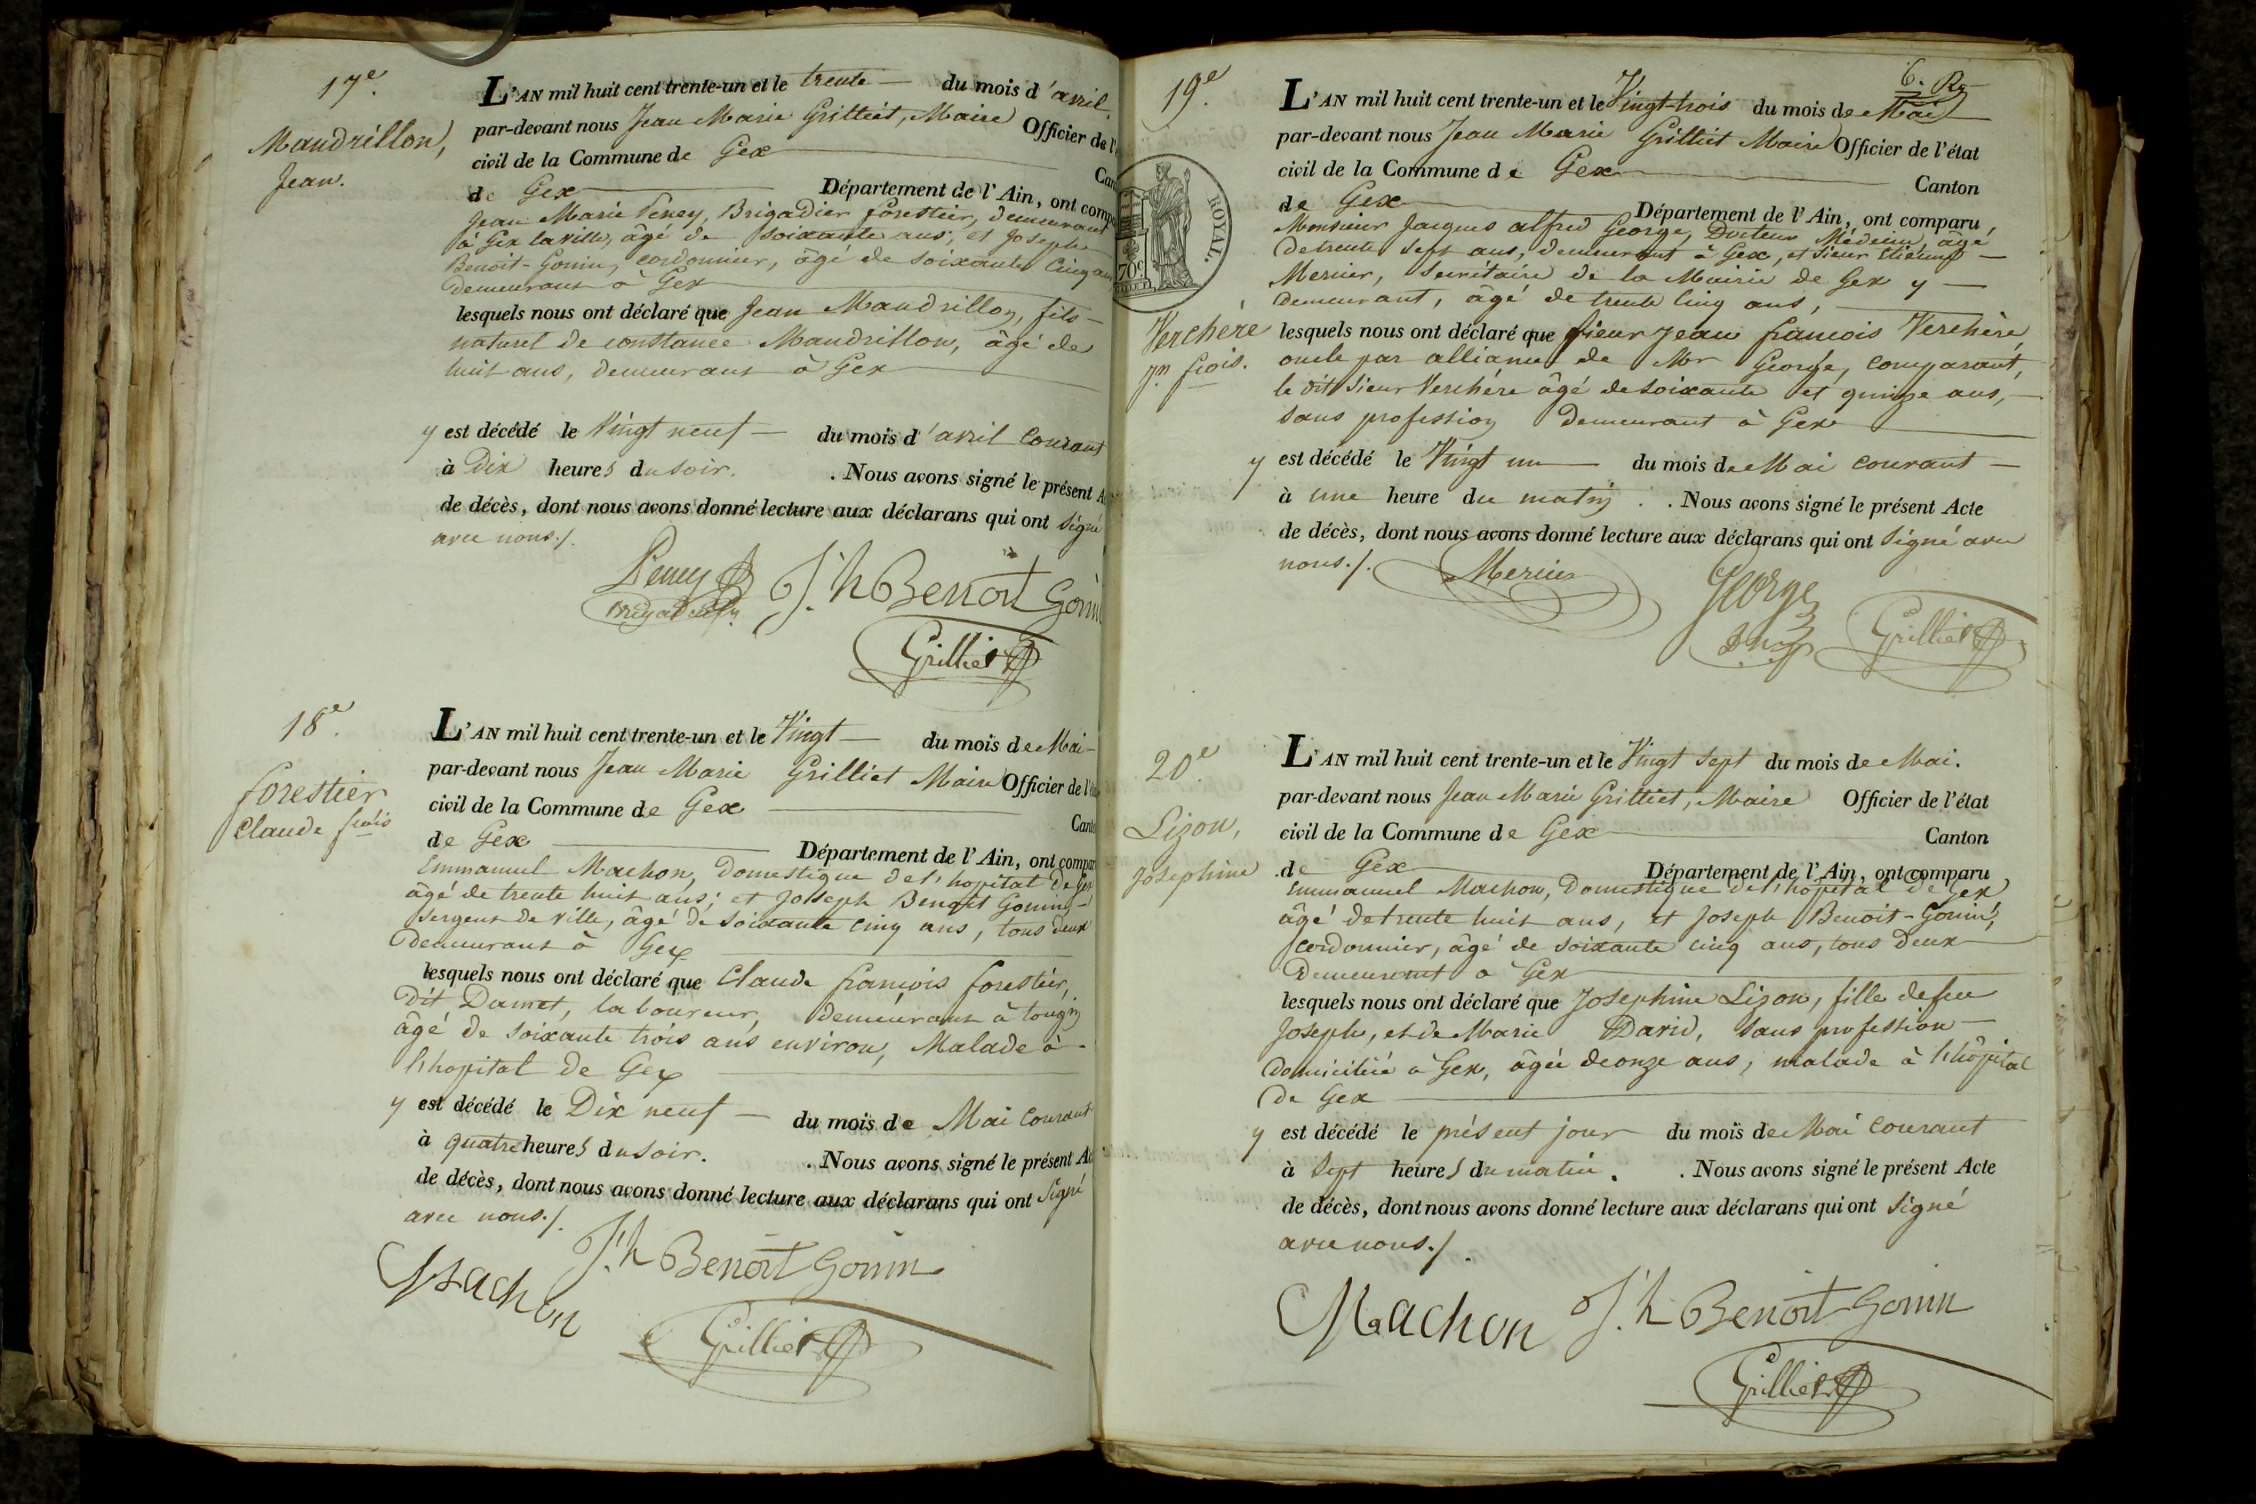 17e.
Mandrillon,
Jean.
L'AN mil huit cent trente-un et le trente du mois d'avril.
par-devant nous Jean Marie Grilliet, Maire Officier de l'
civil de la Commune de Gex
Can
de Gex Département de l'Ain, ont comp
Jean Marie Peney, Brigadier forestier, demeurant
à Gex la ville, âgé de soixante ans; et Joseph
Benoit-Gonin, cordonnier, âgé de soixante cinq ans
demeurant à Gex
lesquels nous ont déclaré que Jean Mandrillon, fils
naturel de constance Mandrillon, âgé de
huit ans, demeurant à Gex
y est décédé le Vingt neuf du mois d'avril courant
à Dix heures du soir. . Nous avons signé le présent A
de décès, dont nous avons donné lecture aux déclarans qui ont signé
avec nous./.
Peney J.h Benoit Gonin
Grilliet
18e.
forestier
Claude fcois
L'AN mil huit cent trente-un et le Vingt du mois de Mai
par-devant nous Jean Marie Grilliet Maire Officier de l'
civil de la Commune de Gex
Cant
de Gex Département de l'Ain, ont compar
Emmanuel Machon, Domestique de l'hopital de Gex
âgé de trente huit ans; et Joseph Benoit Gonin,
sergent de ville, âgé de soixante cinq ans, tous deux
demeurant à Gex
lesquels nous ont déclaré que Claude françois forestier,
dit Damet, laboureur, demeurant à tougin
âgé de soixante trois ans environ, Malade à
l'hopital de Gex
y est décédé le Dix neuf du mois de Mai courant
à quatre heures du soir. . Nous avons signé le présent A
de décès, dont nous avons donné lecture aux déclarans qui ont signé
avec nous./.
Machon J.h Benoit Gonin
Grilliet
6.
19e.
L'AN mil huit cent trente-un et le Vingt-trois du mois de Mai
par-devant nous Jean Marie Grilliet Maire Officier de l'état
civil de la Commune de Gex Canton
de Gex Département de l'Ain, ont comparu,
ROYAL.
70c
Monsieur Jacques alfred George, Docteur Médecin, âgé
de trente sept ans, demeurant à Gex, et sieur Etienne
Mercier, secrétaire de la Mairie de Gex y
demeurant, âgé de trente cinq ans,
Verchère
jn. fcois.
lesquels nous ont déclaré que sieur Jean françois Verchère,
oncle par alliance de Mr George, comparant,
le dit sieur Verchère âgé de soixante et quinze ans,
sans profession demeurant à Gex
y est décédé le Vingt un du mois de Mai courant
à une heure du matin . . Nous avons signé le présent Acte
de décès, dont nous avons donné lecture aux déclarans qui ont signé avec
nous./.
Mercier George
Grilliet
20e.
Lizon,
Josephine
L'AN mil huit cent trente-un et le Vingt sept du mois de Mai.
par-devant nous Jean Marie Grilliet, Maire Officier de l'état
civil de la Commune de Gex Canton
de Gex Département de l'Ain, ont comparu
Emmanuel Machon, Domestique de l'hôpital de Gex
âgé de trente huit ans, et Joseph Benoit-Gonin,
cordonnier, âgé de soixante cinq ans, tous deux
demeurant à Gex
lesquels nous ont déclaré que Josephine Lizon, fille de feu
Joseph, et de Marie David, sans profession
domiciliée à Gex, âgée de onze ans, malade à l'hôpital
de Gex
y est décédé le présent jour du mois de Mai courant
à sept heures du matin. . Nous avons signé le présent Acte
de décès, dont nous avons donné lecture aux déclarans qui ont signé
avec nous./.
Machon J.h Benoit Gonin
Grilliet